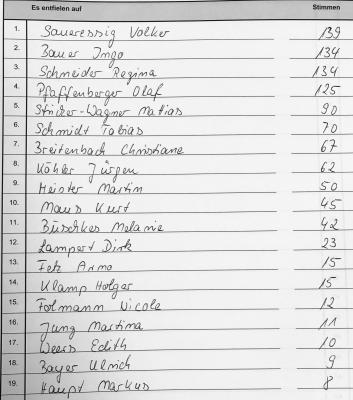 Es entfielen auf Stimmen
1. Saueressig Volker 139
2. Bauer Ingo 134
3. Schneider Regina 134
4. Pfaffenberger Olaf 125
5. Stritzer-Wagner Matias 90
6. Schmidt Tobias 70
7. Breitenbach Christiane 67
8. Köhler Jürgen 62
9. Heister Martin 50
10. Maus Kurt 45
11. Büschkes Melanie 42
12. Lampert Dirk 23
13. Fetz Arno 15
14. Klamp Holger 15
15. Folmann Nicole 12
16. Jung Martina 11
17. Weers Edith 10
18. Bayer Ulrich 9
19. Haupt Markus 8